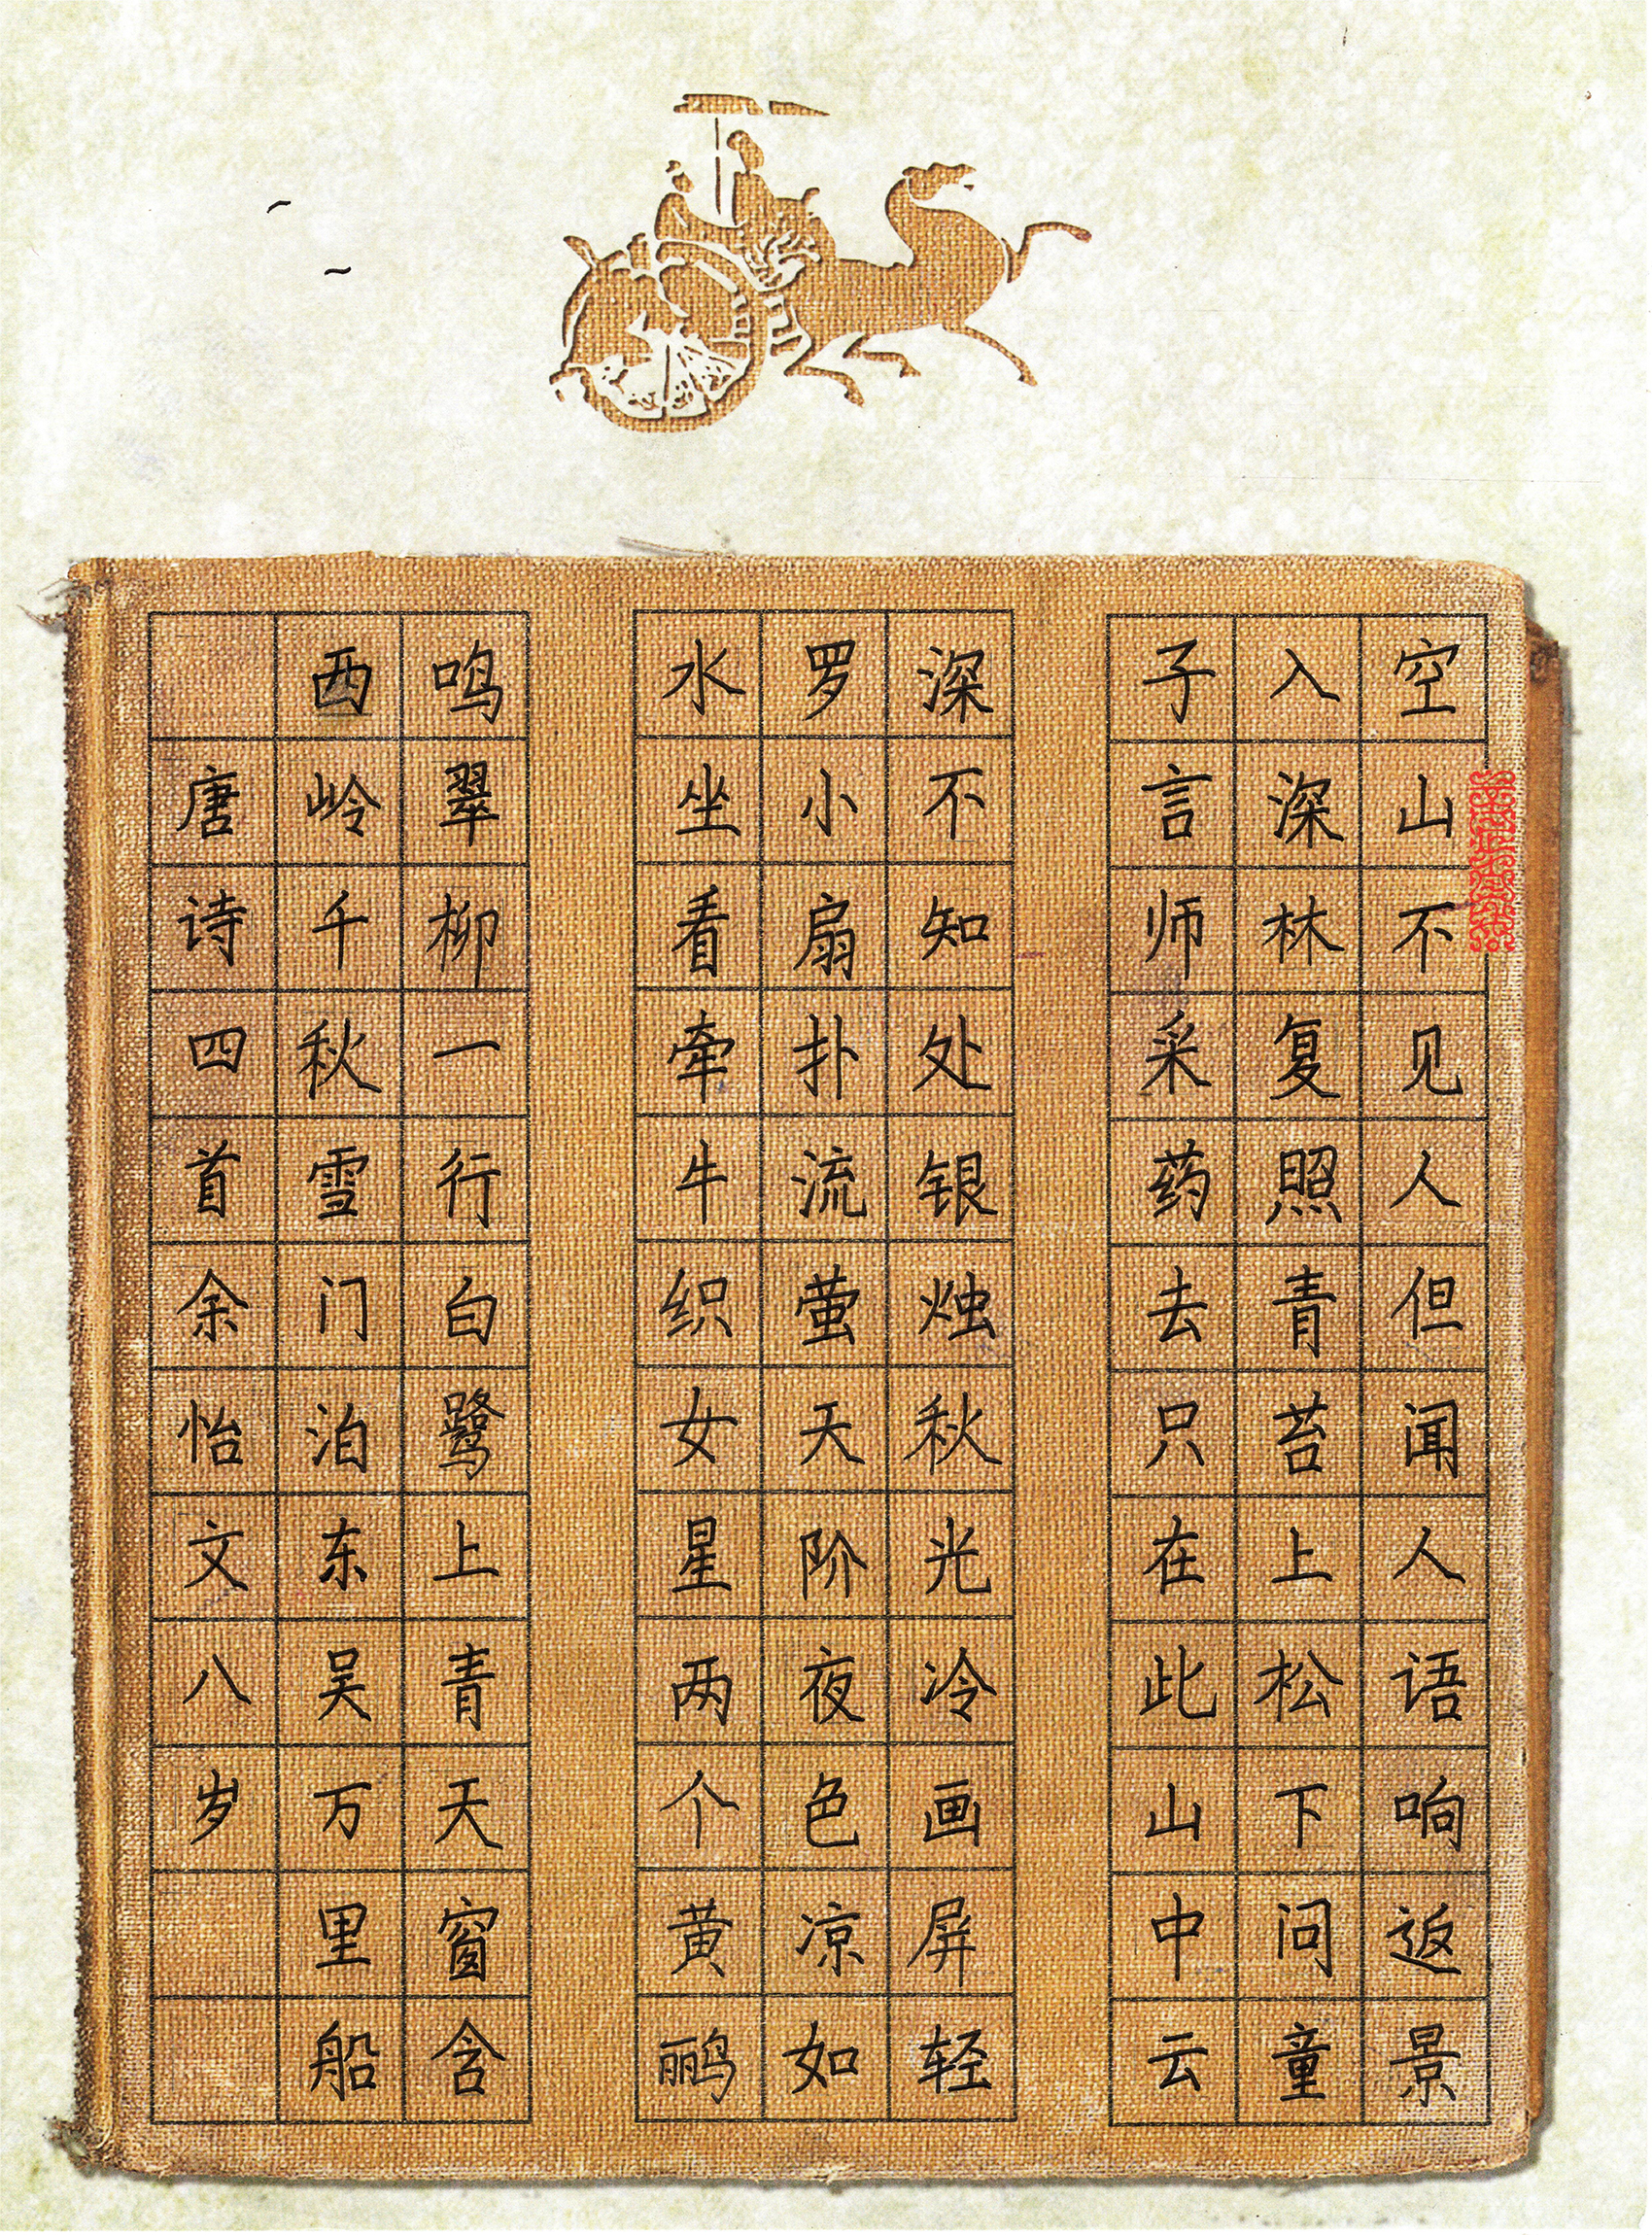 空山不见人但闻人语响返景
入深林复照青苔上松下问童
子言师采药去只在此山中云
深不知处银烛秋光冷画屏轻
罗小扇扑流萤天阶夜色凉如
水坐看牵牛织女星两个黄鹂
鸣翠柳一行白鹭上青天窗含
西岭千秋雪门泊东吴万里船
唐诗四首余怡文八岁